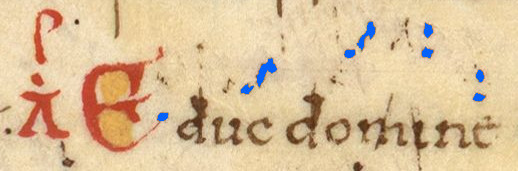 P.
.A Educ domine